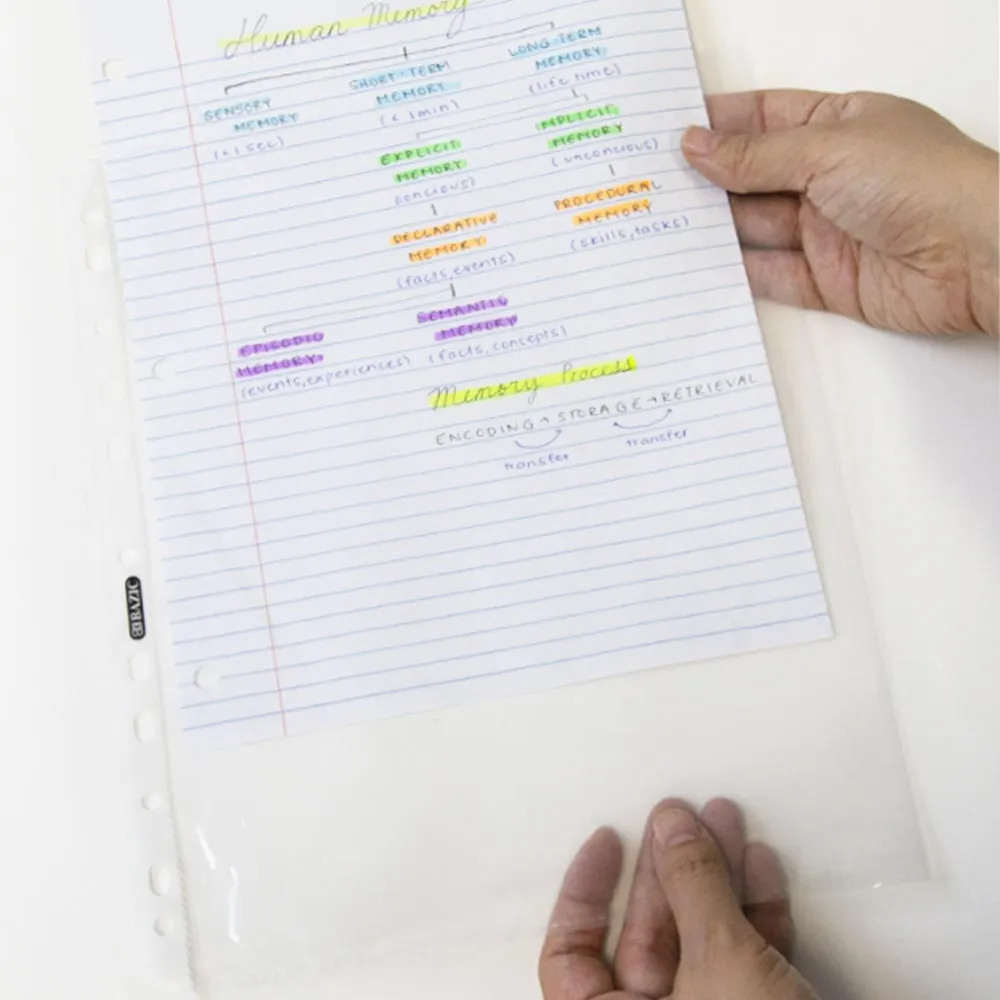 Human Memory
SENSORY
MEMORY
(< 1 sec)
SHORT-TERM
MEMORY
(< 1min)
LONG TERM
MEMORY
(life time)
EXPLICIT
MEMORY
(concious)
IMPLICIT
MEMORY
(unconcious)
DECLARATIVE
MEMORY
(facts, events)
PROCEDURAL
MEMORY
(skills, tasks)
EPISODIC
MEMORY
(events, experiences)
SEMANTIC
MEMORY
(facts, concepts)
Memory Process
ENCODING → STORAGE → RETRIEVAL
transfer transfer
BAZIC